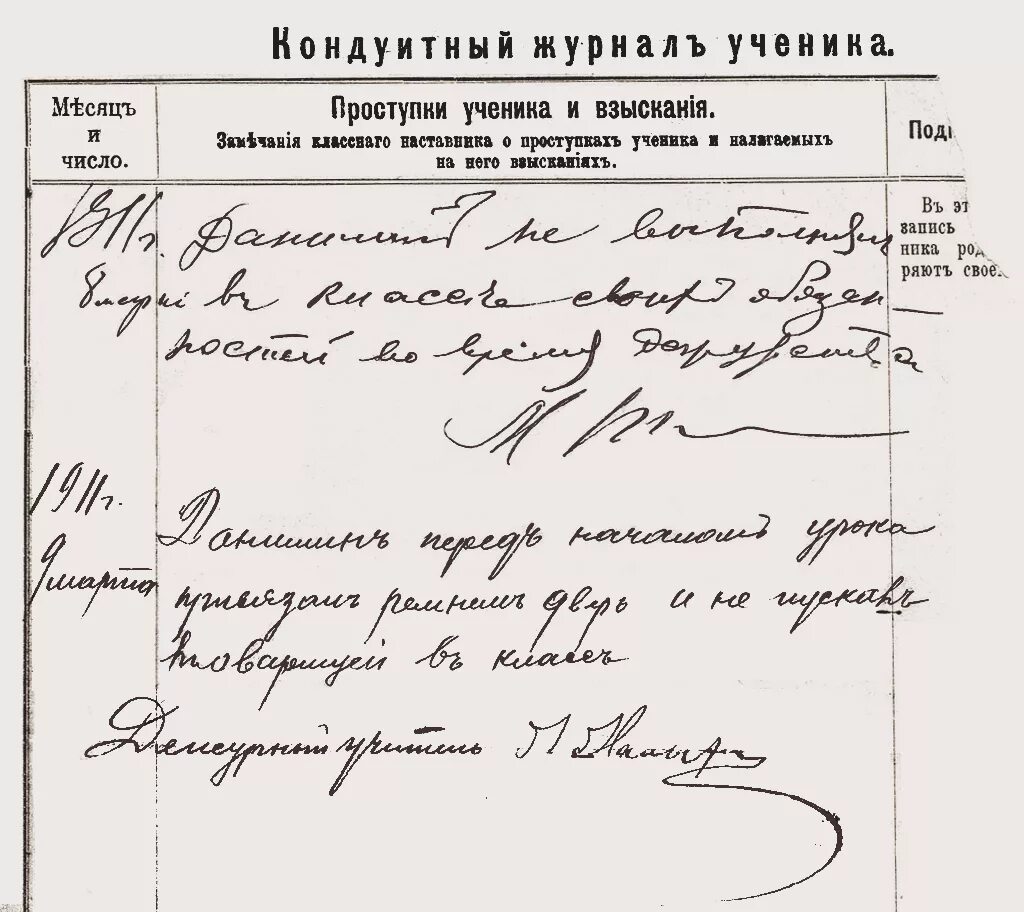 Кондуитный журналъ ученика.
Мѣсяцъ
и
число.
Проступки ученика и взысканія.
Замѣчанія класснаго наставника о проступкахъ ученика и налагаемыхъ
на него взысканіяхъ.
Въ
запись
ника
1911г. не выполнялъ
8 въ классѣ своихъ обязан
ностей во время дежурства
1911г.
9 марта
Данилинъ передъ началомъ урока
привязалъ ремнемъ дверь и не пускалъ
товарищей въ классъ
Дежурный учитель